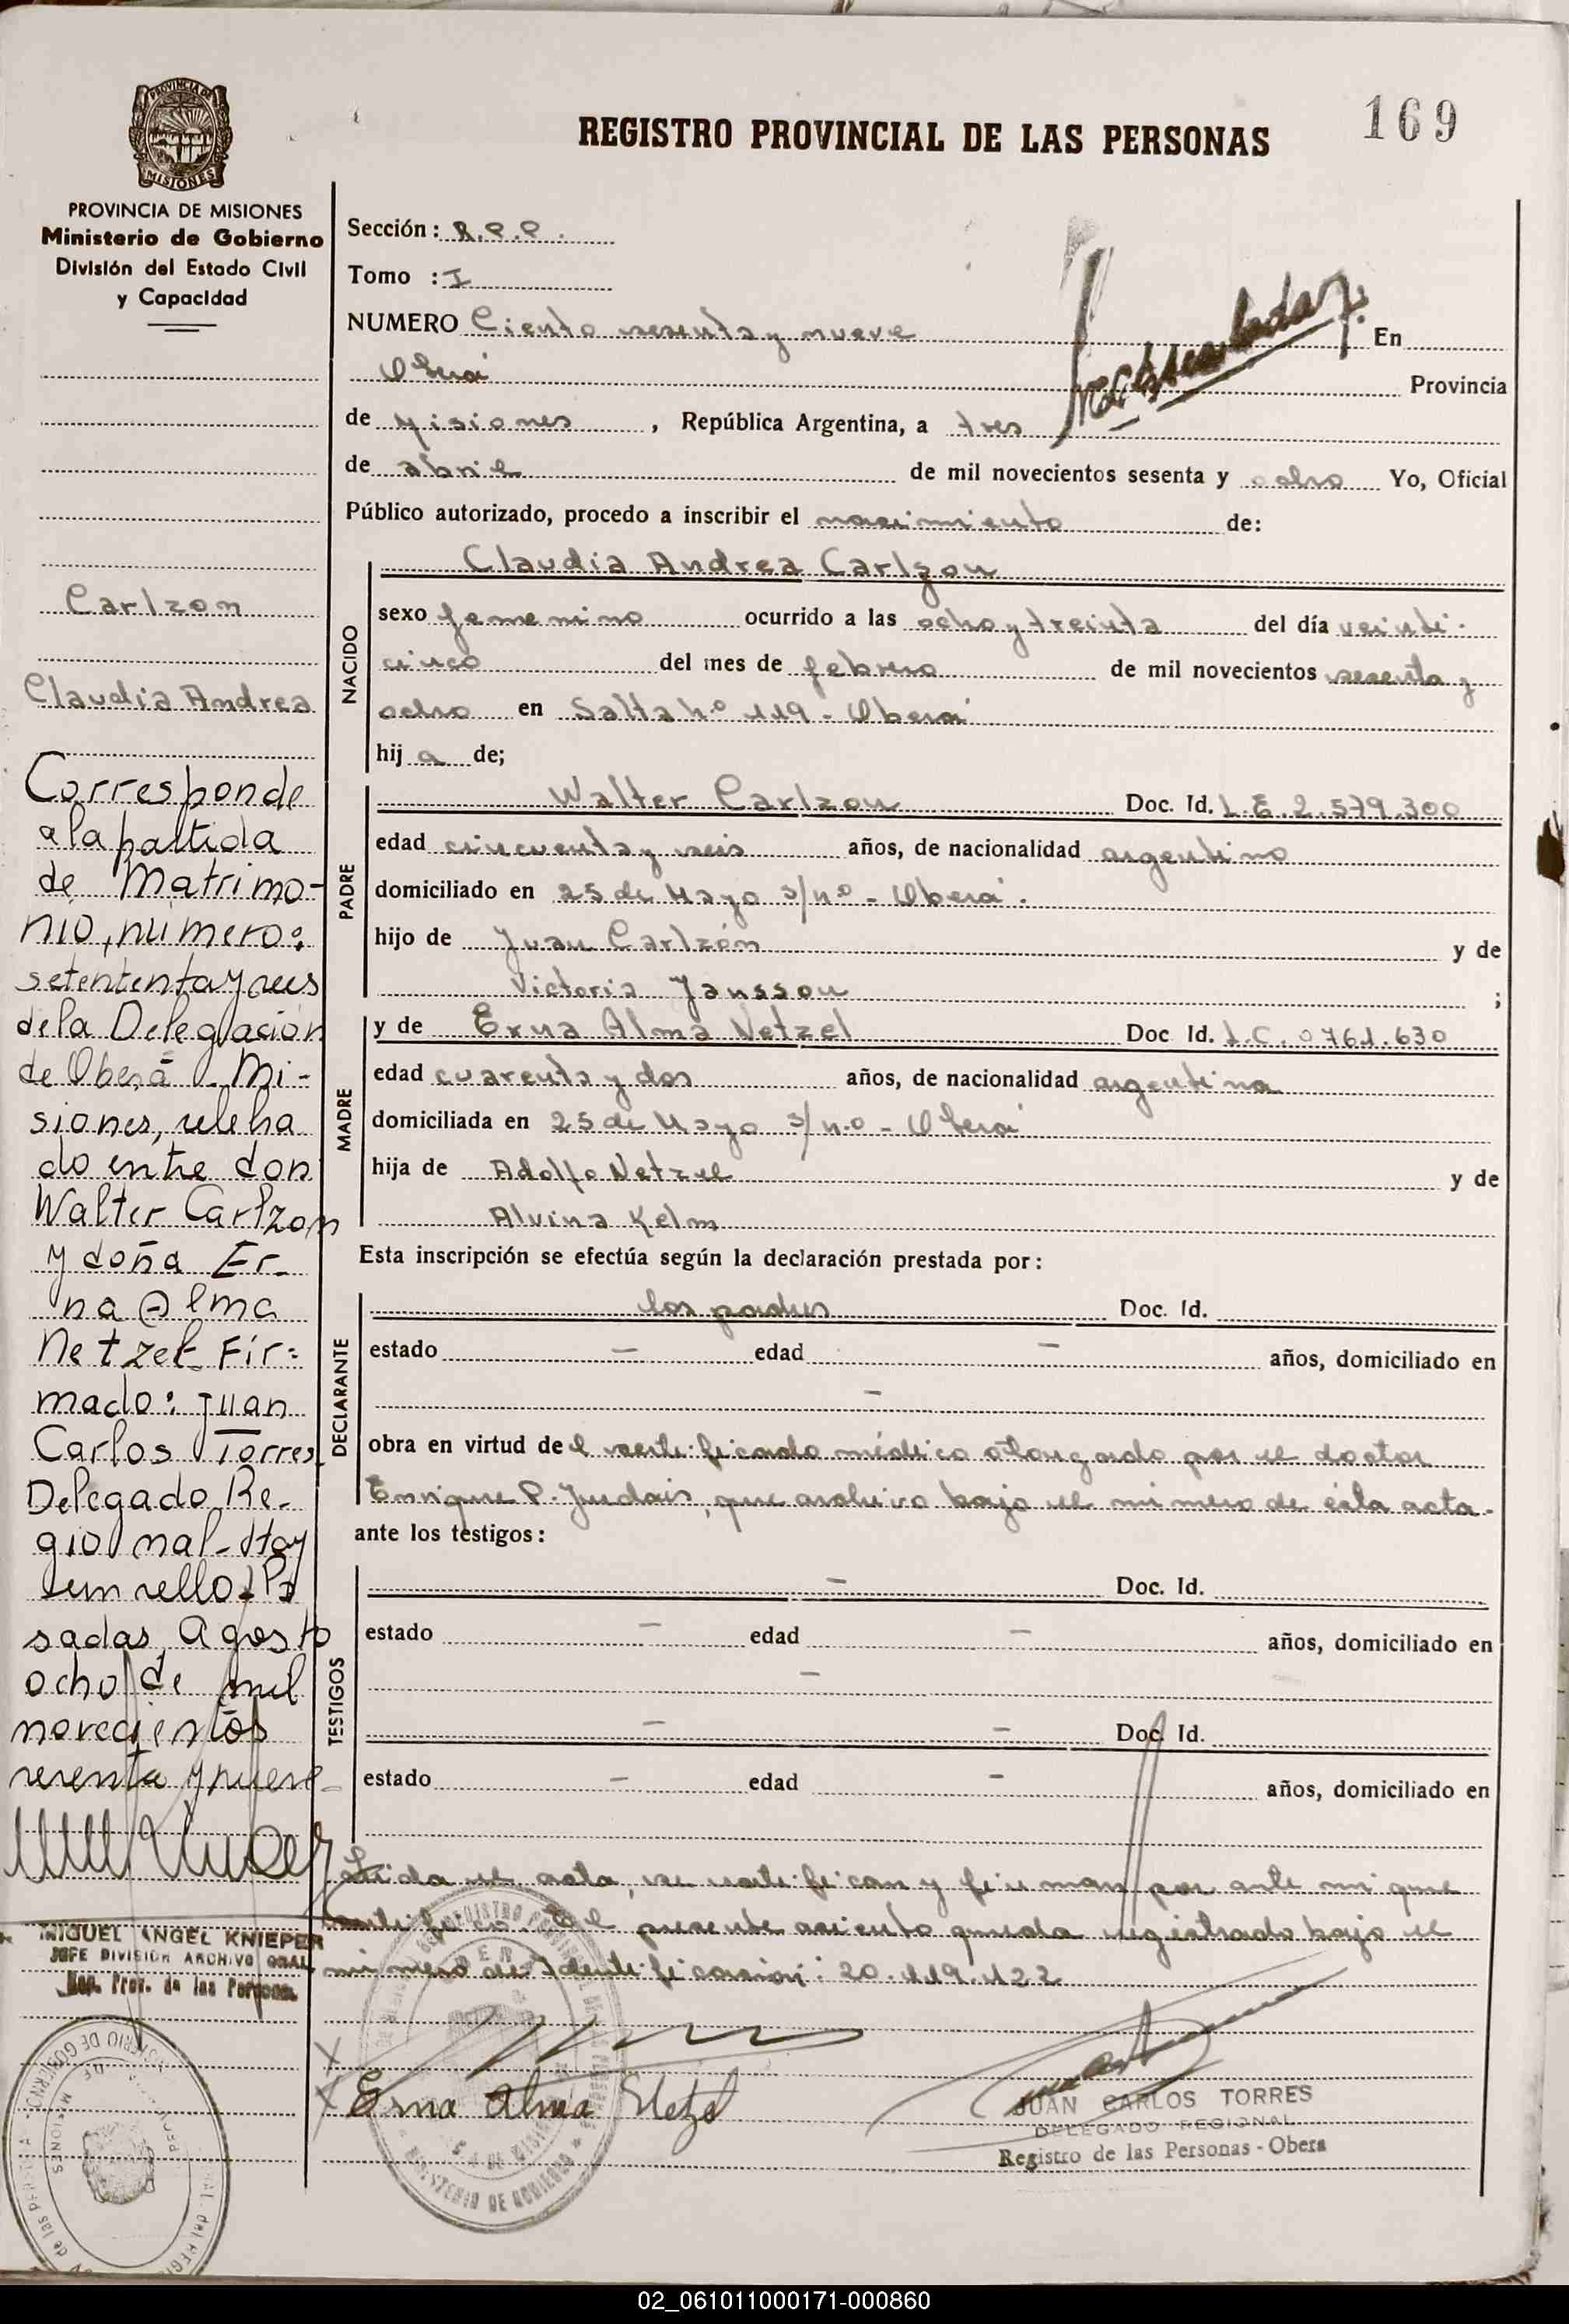 169
REGISTRO PROVINCIAL DE LAS PERSONAS
PROVINCIA DE
MISIONES
PROVINCIA DE MISIONES
Ministerio de Gobierno
División del Estado Civil
y Capacidad
Carlzon
Claudia Andrea
Corresponde
a la partida
de Matrimo-
nio, número:
setententa y
de la Delegación
de Oberá - Mi-
siones, celeba
do entre don
Walter Carlzon
y doña Er-
na Alma
Netzel Fir=
mado: Juan
Carlos Torres
Delegado Re-
gional - Hay
un sello - Po
sadas, Agosto
ocho de mil
novecientos
sesenta y nueve
MIGUEL ANGEL KNIEPER
JEFE DIVISION ARCHIVO GRAL
Reg. Prov. de las Personas
Sección: R.P.P.
Tomo : I
NUMERO Ciento sesenta y nueve En
Oberá Provincia
de Misiones, República Argentina, a tres
de abril de mil novecientos sesenta y ocho Yo, Oficial
Público autorizado, procedo a inscribir el nacimiento de:
NACIDO
Claudia Andrea Carlzon
sexo femenino ocurrido a las ocho y treinta del día veinti-
cinco del mes de febrero de mil novecientos sesenta y
ocho en Salta nº 119 - Oberá
hij a de;
PADRE
Walter Carlzon Doc. Id. L.E. 2.579.300
edad cincuenta y seis años, de nacionalidad argentino
domiciliado en 25 de Mayo s/nº - Oberá.
hijo de Juan Carlzón y de
Victoria Jansson ;
MADRE
y de Erna Alma Netzel Doc Id. L.C. 0761.630
edad cuarenta y dos años, de nacionalidad argentina
domiciliada en 25 de Mayo s/n.o - Oberá
hija de Adolfo Netzel y de
Alvina Kelm
Esta inscripción se efectúa según la declaración prestada por:
DECLARANTE
los padres Doc. Id.
estado - edad - años, domiciliado en
-
obra en virtud del certificado médico otorgado por el doctor
Enrique P. , que archivo bajo el número de ésta acta-
ante los testigos:
TESTIGOS
- Doc. Id.
estado - edad - años, domiciliado en
-
- - Doc. Id.
estado - edad - años, domiciliado en
Leida el acta, se ratifican y firman por ante mi que
certifico. El presente asiento queda registrado bajo el
número de Identificación: 20.119.122
Erna Alma Netzel
JUAN CARLOS TORRES
DELEGADO REGIONAL
Registro de las Personas - Obera
MINISTERIO DE GOBIERNO
02_061011000171-000860